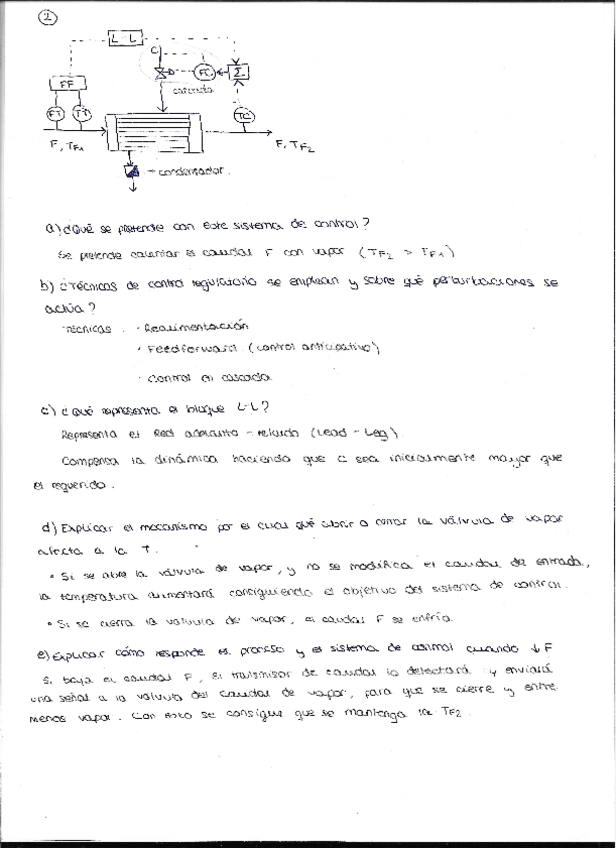 2
L-L
C
FF
FC
Σ
cascada
FT TT
TC
F, TF1
F, TF2
→ condensador.
a) ¿Qué se pretende con este sistema de control?
Se pretende calentar el caudal F con vapor (TF2 > TF1)
b) ¿Técnicas de control regulatorio se emplean y sobre qué perturbaciones se
actúa?
Técnicas: · Realimentación
· Feedforward (control anticipativo)
· Control en cascada
c) ¿Qué representa el bloque L-L?
Representa el Red adelanto - retardo (Lead - Lag)
Compensa la dinámica haciendo que C sea inicialmente mayor que
el requerido.
d) Explicar el mecanismo por el cual qué abrir o cerrar la válvula de vapor
afecta a la T.
• Si se abre la válvula de vapor, y no se modifica el caudal de entrada,
la temperatura aumentará consiguiendo el objetivo del sistema de control.
• Si se cierra la válvula de vapor, el caudal F se enfría
e) Explicar cómo responde el proceso y el sistema de control cuando ↓ F
Si baja el caudal F, el transmisor de caudal lo detectará y enviará
una señal a la válvula del caudal de vapor, para que se cierre y entre
menos vapor. Con esto se consigue que se mantenga la TF2.